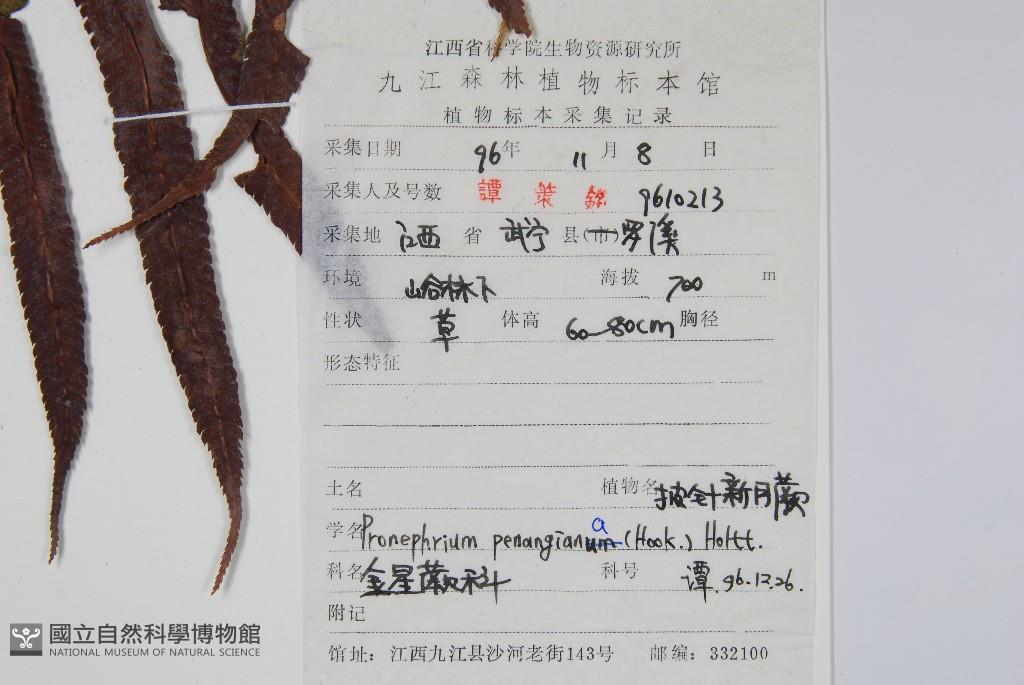 江西省科学院生物资源研究所
九江森林植物标本馆
植物标本采集记录
采集日期 96年 11月 8日
采集人及号数 譚策銘 9610213
采集地 江西省 武宁县(市)罗溪
环境 山谷林下 海拔 700 m
性状 草 体高 60-80cm 胸径
形态特征
土名 植物名 披针新月蕨
学名 Pronephrium penangianum (Hook.) Holtt.
a
科名 金星蕨科 科号 谭.96.12.26.
附记
馆址：江西九江县沙河老街143号 邮编：332100
國立自然科學博物館
NATIONAL MUSEUM OF NATURAL SCIENCE